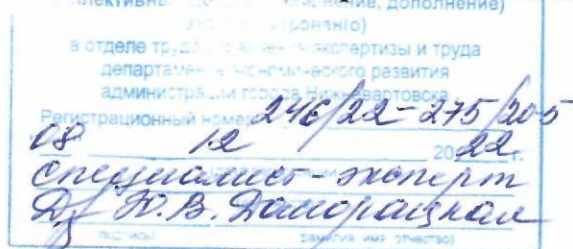 (изменение, дополнение)
в отделе труда управления экспертизы и труда
департамента экономического развития
администрации города Нижневартовска
Регистрационный номер 246/22-275/20-5
08 12 2022 г.
специалист-эксперт
Ю.В.
подпись фамилия имя отчество)